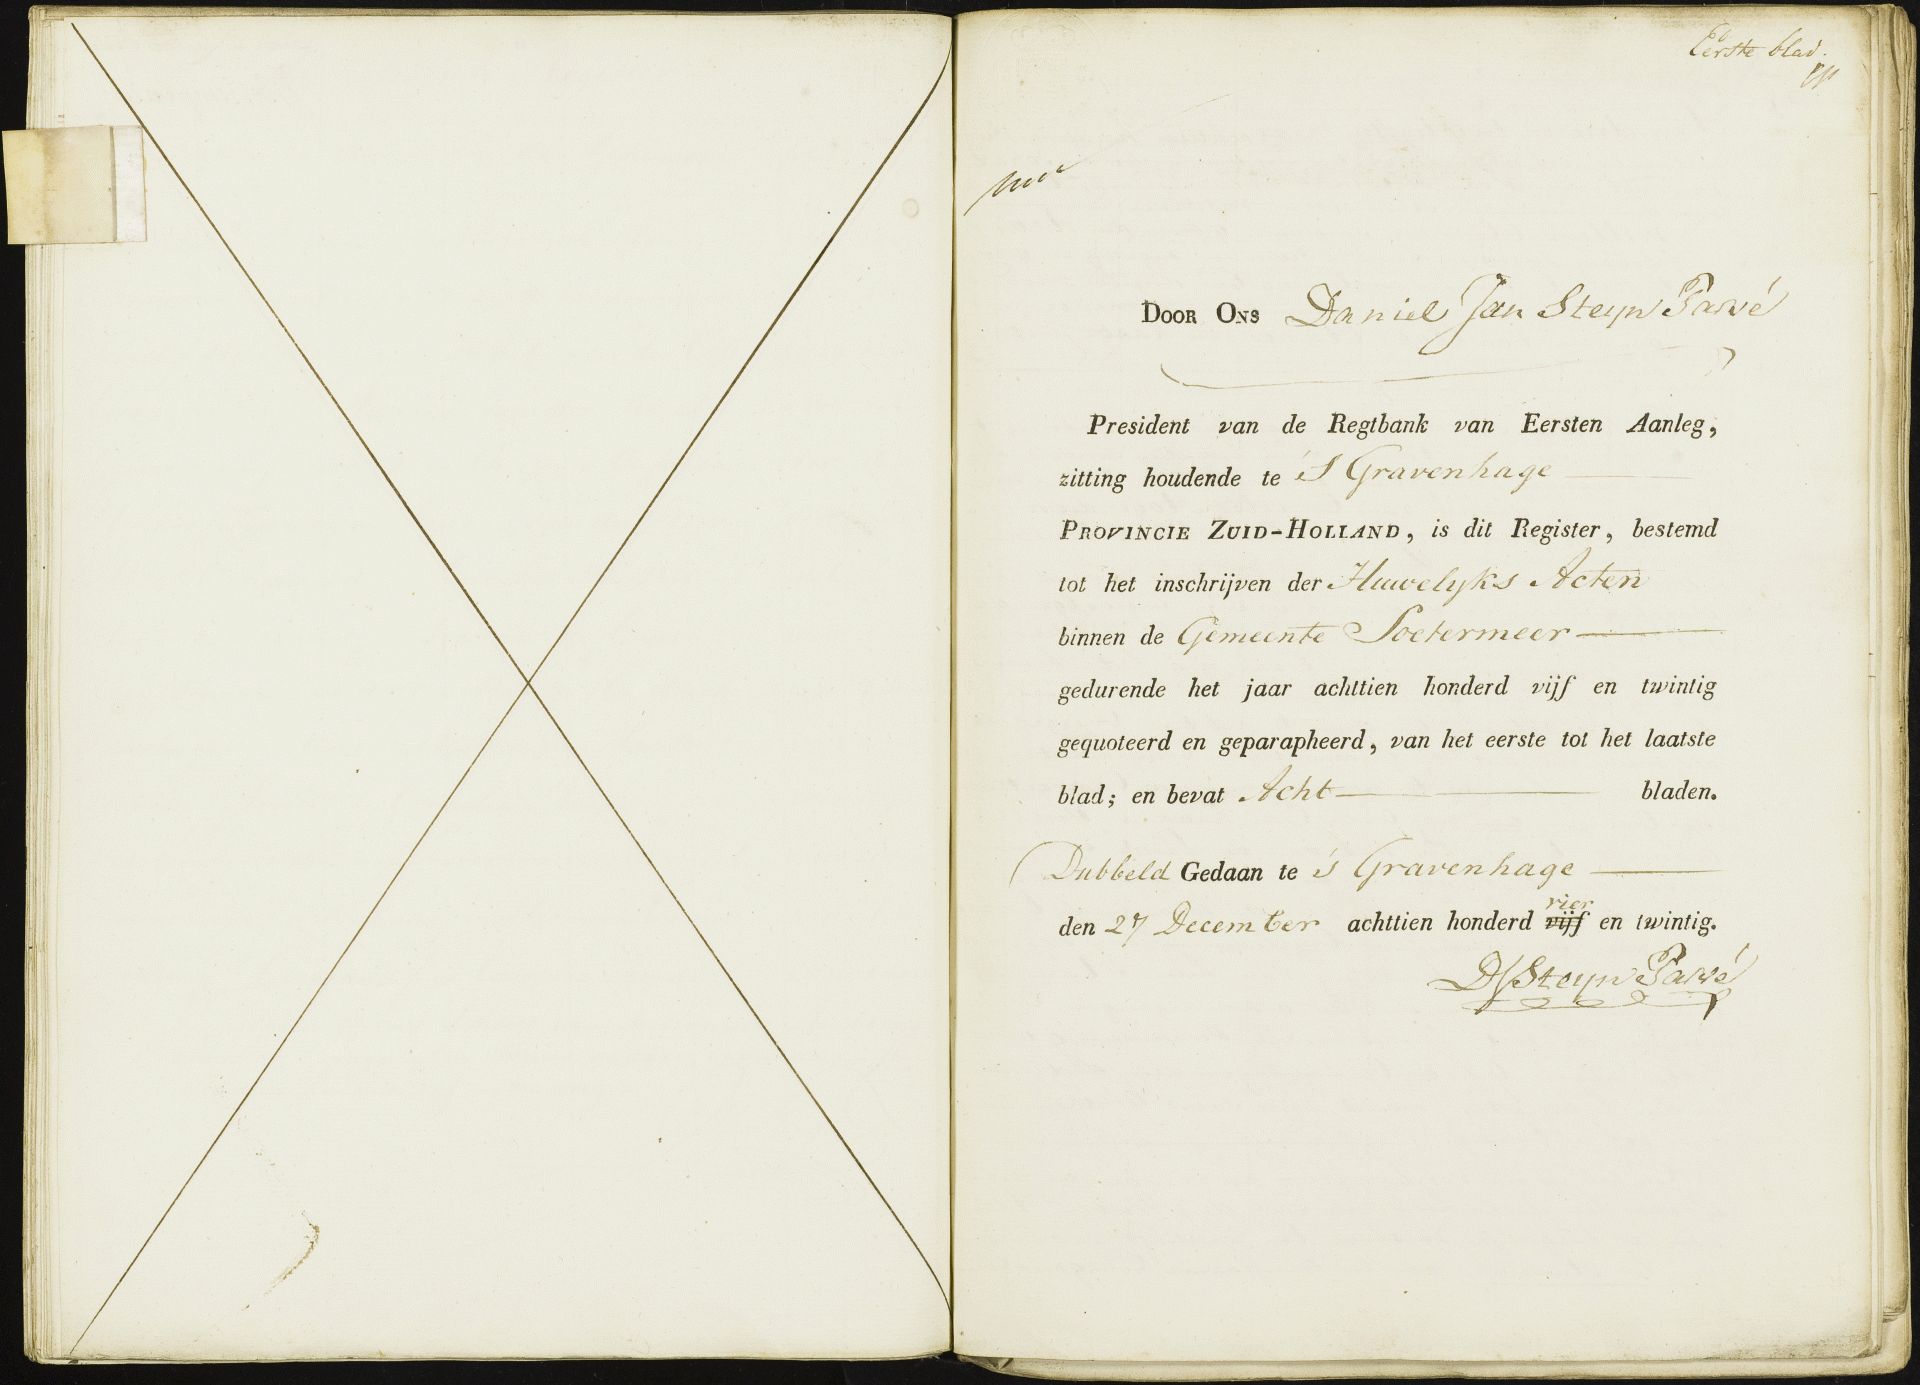 Eerste blad.
Door Ons Daniel Jan Steyn Parvé
President van de Regtbank van Eersten Aanleg,
zitting houdende te 's Gravenhage
Provincie Zuid-Holland, is dit Register, bestemd
tot het inschrijven der Huwelyks Acten
binnen de Gemeente Soetermeer
gedurende het jaar achttien honderd vijf en twintig
gequoteerd en geparapheerd, van het eerste tot het laatste
blad; en bevat Acht bladen.
Dubbeld Gedaan te 's Gravenhage
vier
den 27 December achttien honderd vijf en twintig.
DJ Steyn Parvé